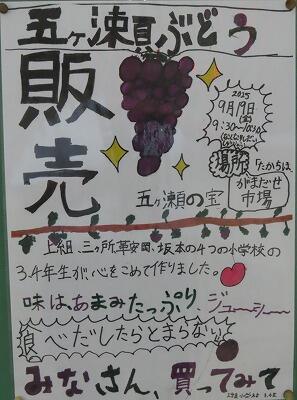 五ヶ瀬ぶどう
販売
2025
9月19日(金)
9:30~
場所
たからは、
がまだせ
市場
五ヶ瀬の宝
上組、三ヶ所、鞍岡、坂本の4つの小学校の
3.4年生が心をこめて作りました。
味は、あまみたっぷり、ジューシー
食べだしたらとまらない
みなさん、買ってみて